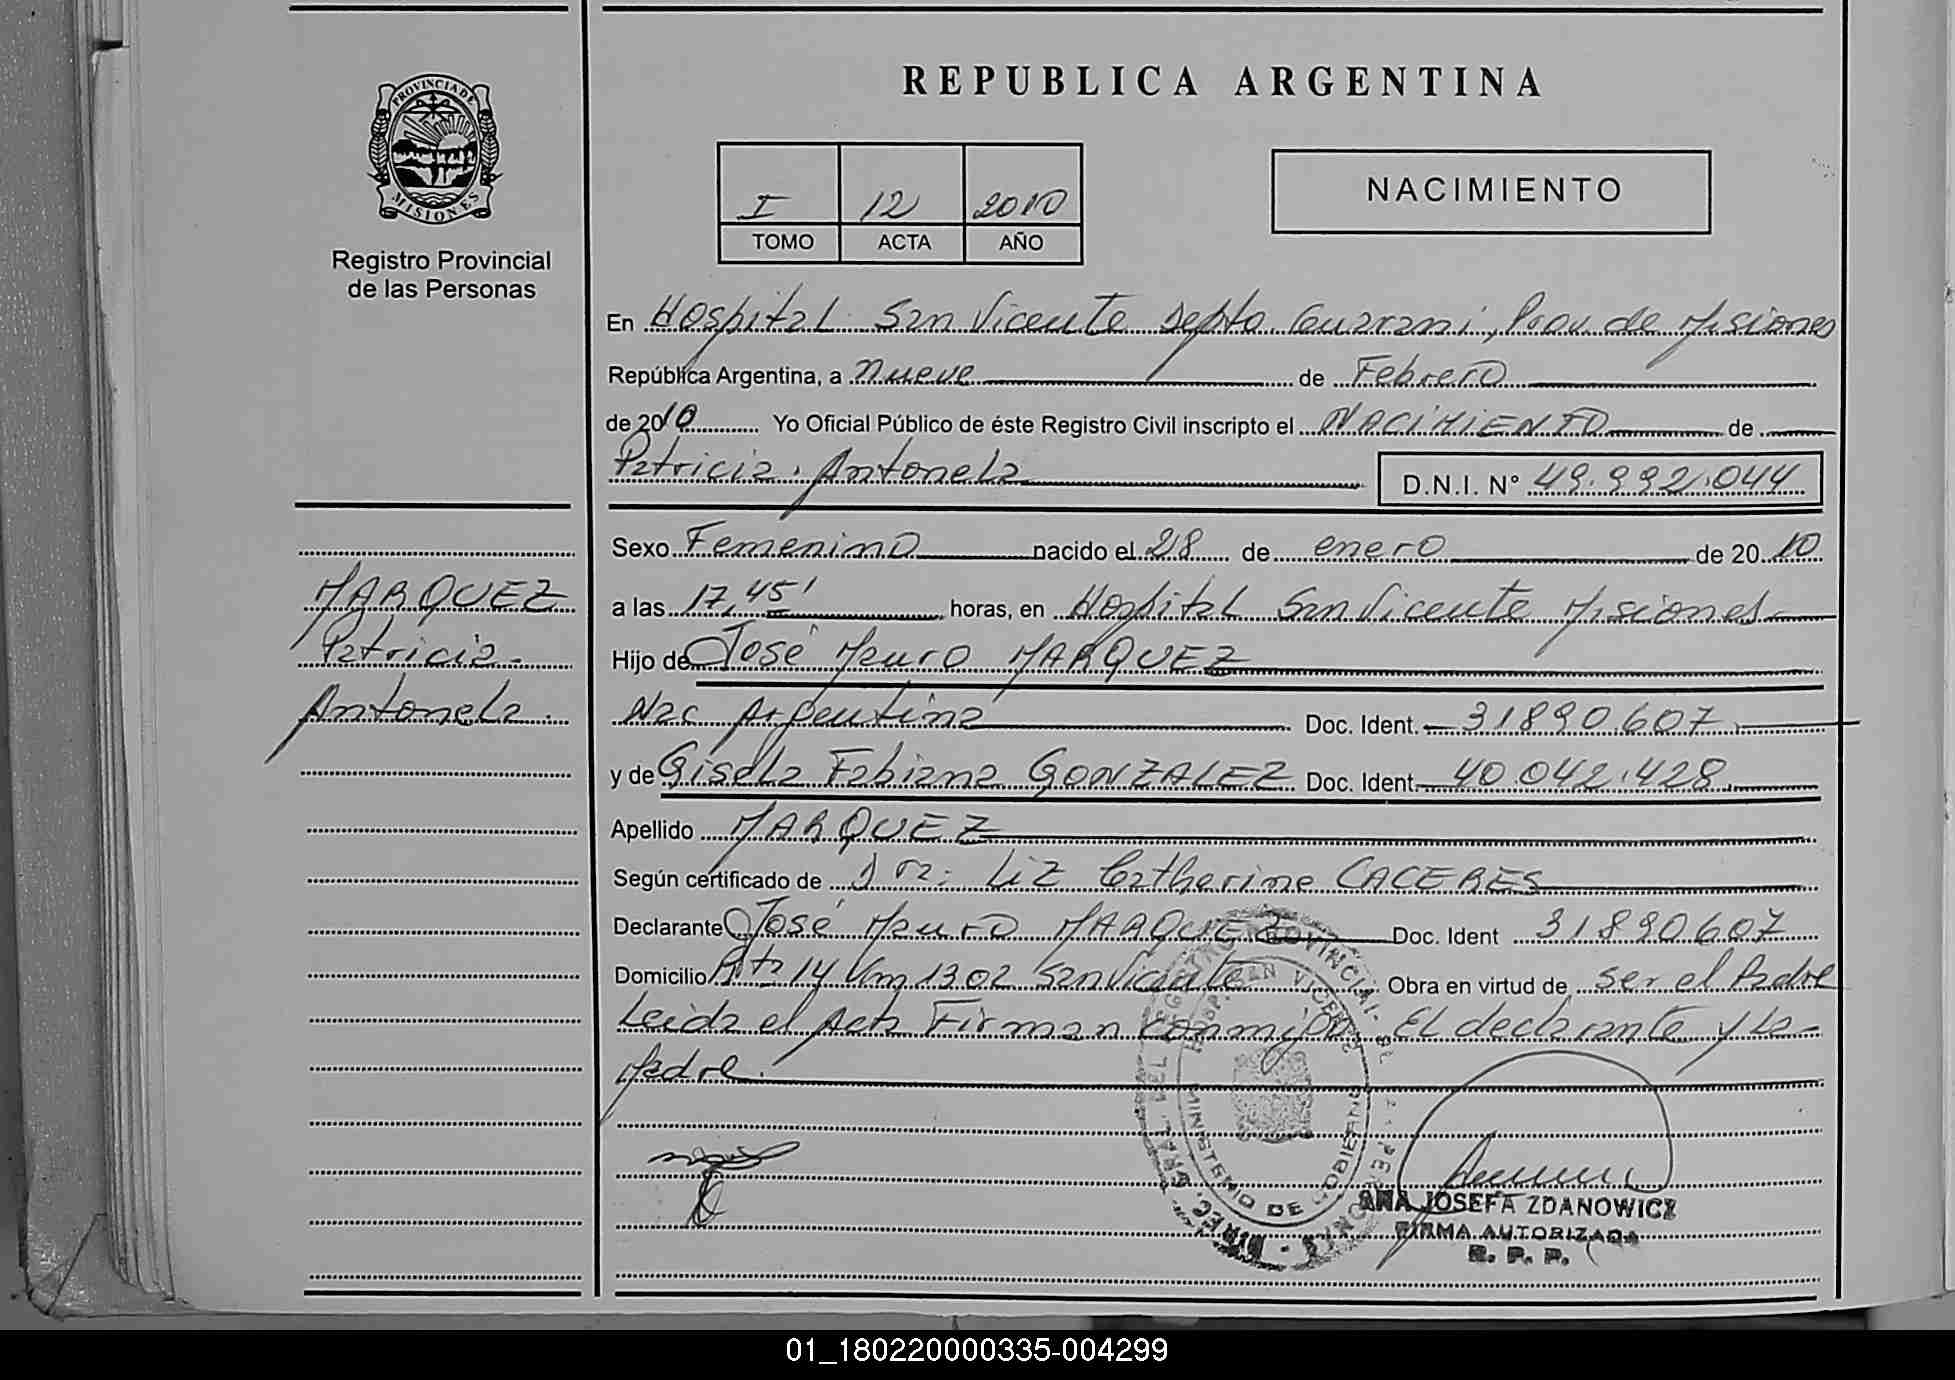 REPUBLICA ARGENTINA
PROVINCIA DE
MISIONES
Registro Provincial
de las Personas
I 12 2010
TOMO ACTA AÑO
NACIMIENTO
En Hospital San Vicente Depto. Guarani, Prov. de Misiones
República Argentina, a nueve de Febrero
de 2010 Yo Oficial Público de éste Registro Civil inscripto el NACIMIENTO de
Patricia Antonela
D.N.I. N° 49.992.044
Sexo Femenino nacido el 28 de enero de 2010
a las 17,45' horas, en Hospital San Vicente Misiones
Hijo de José Mauro MARQUEZ
Nac Argentina Doc. Ident. 31890.607
y de Gisela Fabiana GONZALEZ Doc. Ident. 40.042.428
Apellido MARQUEZ
Según certificado de Dra: Liz Catherine CACERES
Declarante José Mauro MARQUEZ Doc. Ident 31890607
Domicilio Rta 14 Km 1302 San Vicente Obra en virtud de ser el Padre
Leida el Acta Firman conmigo El declarante y la
Madre.
MARQUEZ
Patricia
Antonela
MINISTERIO DE GOBIERNO
ANA JOSEFA ZDANOWICZ
FIRMA AUTORIZADA
R. P. P.
01_180220000335-004299